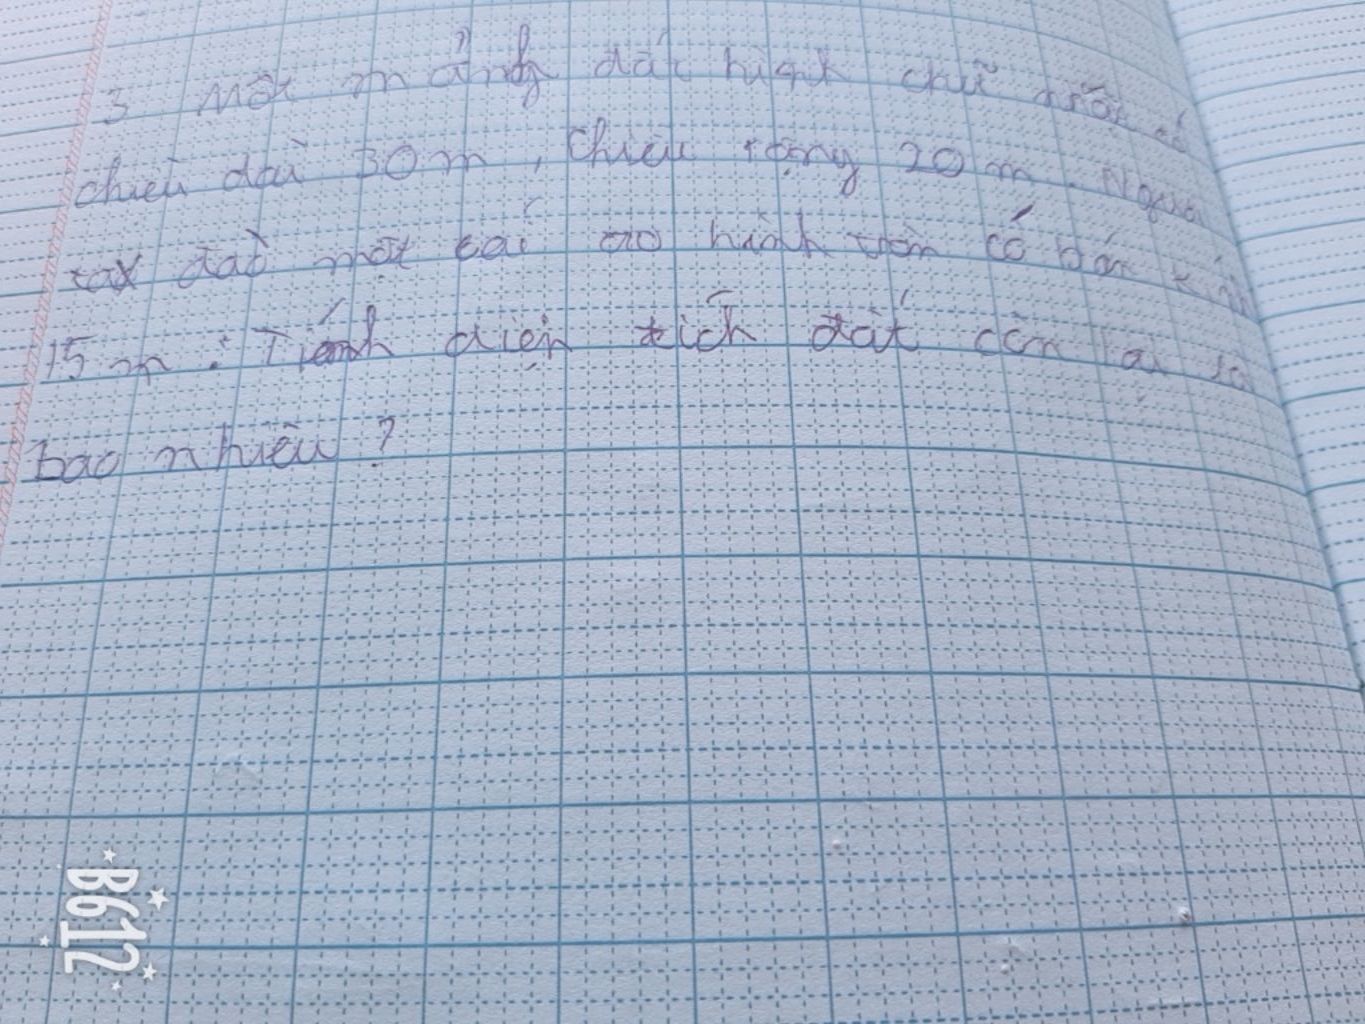 3 Một mảnh đất hình chữ nhật có
chiều dài 30m, chiều rộng 20m. Người
ta đào một cái ao hình tròn có bán kính
15 m. Tính diện tích đất còn lại là
bao nhiêu ?
B612